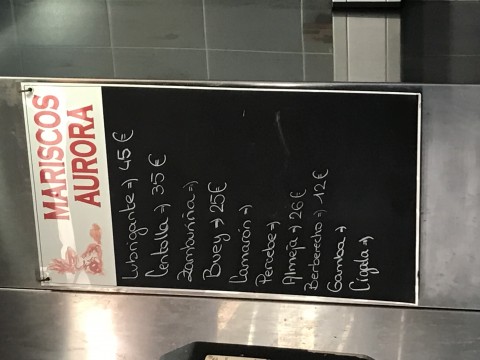 MARISCOS
AURORA
Lubrigante⇒ 45€
Centolla⇒ 35€
Zamburiña⇒
Buey⇒ 25€
Camarón⇒
Percebe⇒
Almeja⇒ 26€
Berberecho⇒ 12€
Gamba⇒
Cigala⇒